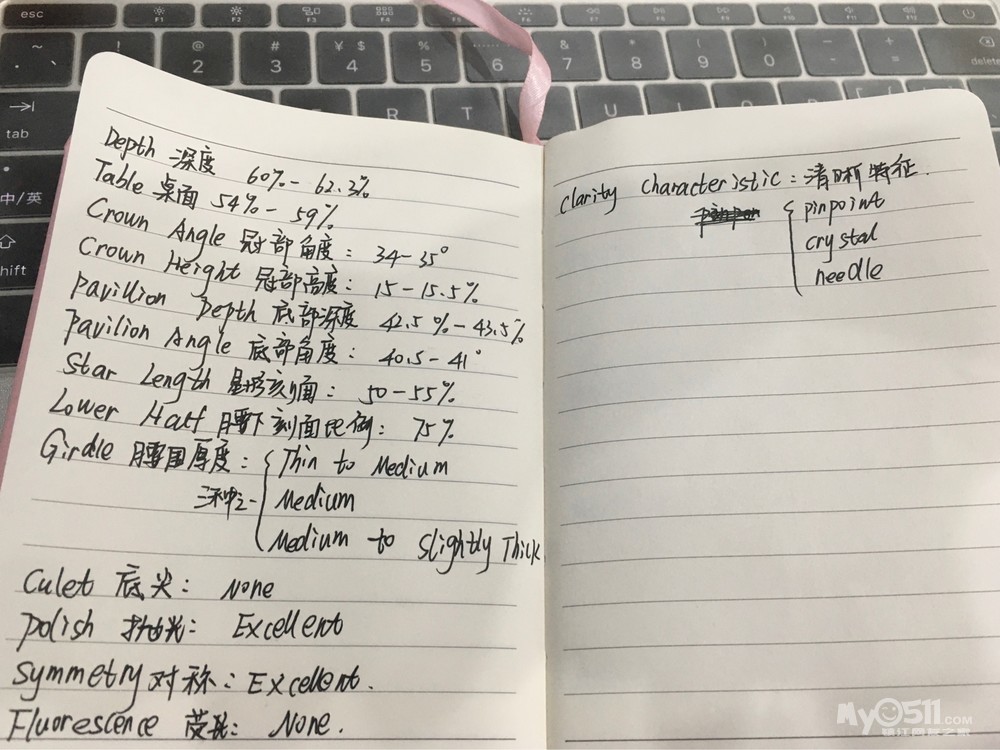 esc
F1
F2
F3
F4
F5
F6
~
!
@
2
#
3
¥ $
4
%
5
6
&
7
*
8
(
9
)
0
—
-
+
=
delete
tab
R
T
中/英
shift
Depth 深度 60%-62.3%
Table 桌面 54%-59%
Crown Angle 冠部角度: 34-35°
Crown Height 冠部高度: 15-15.5%
Pavillion Depth 底部深度 42.5%-43.5%
Pavilion Angle 底部角度: 40.5-41°
Star Length 星形刻面: 50-55%
Lower Half 腰下刻面比例: 75%
Girdle 腰围厚度: Thin to Medium
三种之一 Medium
Medium to Slightly Thick
Culet 底尖: None
Polish 抛光: Excellent
Symmetry 对称: Excellent.
Fluorescence 荧光: None.
Clarity Characteristic: 清晰特征.
pinpoint
crystal
needle
My0511.COM